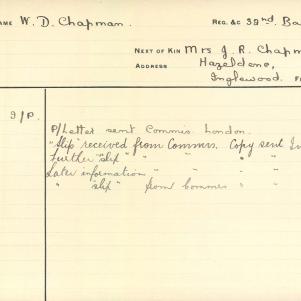 NAME W. D. Chapman. REG. &C 32nd. Ba
NEXT OF KIN Mrs J. R. Chapm
ADDRESS Hazeldene,
Inglewood.
9/P.
P/Letter sent Commis. London.
"Slip" received from Commrs. Copy sent In
Further "slip" " " " "
Later information " " " "
" "slip" from Commrs " "